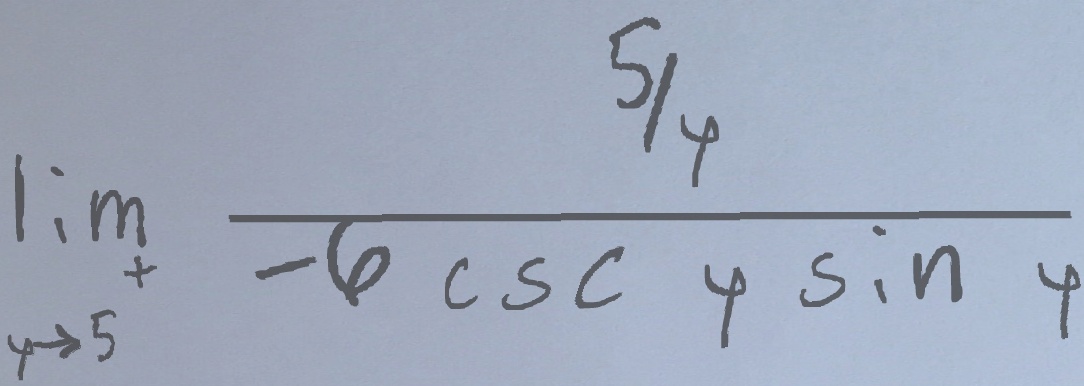 lim y→5⁺ (5/y) / (-6 csc y sin y)